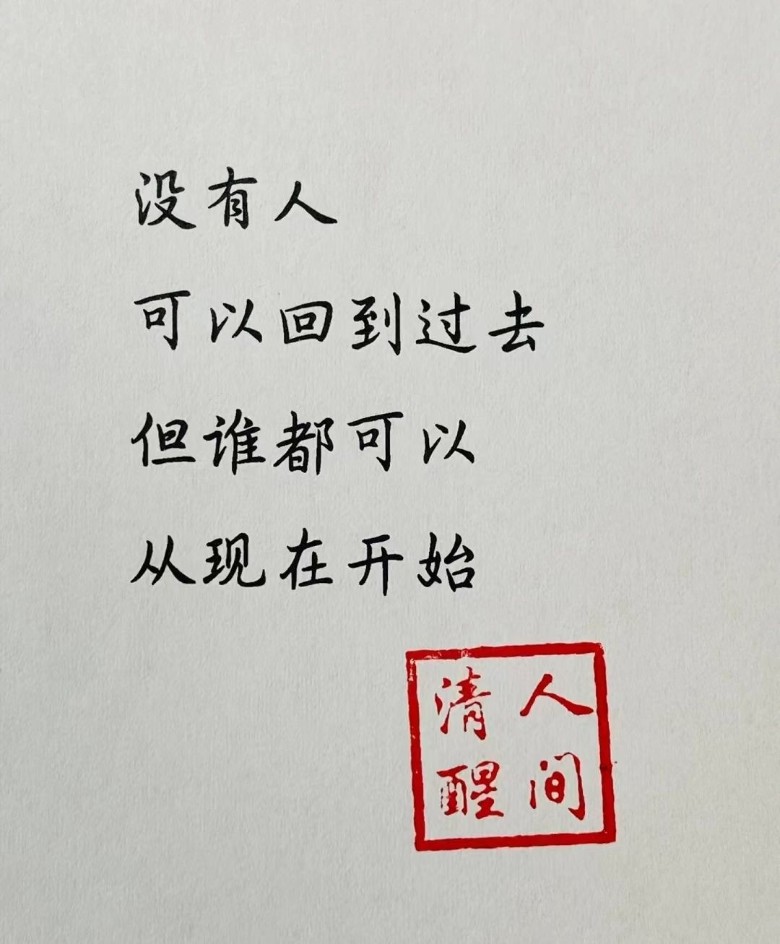 没有人
可以回到过去
但谁都可以
从现在开始
人间
清醒